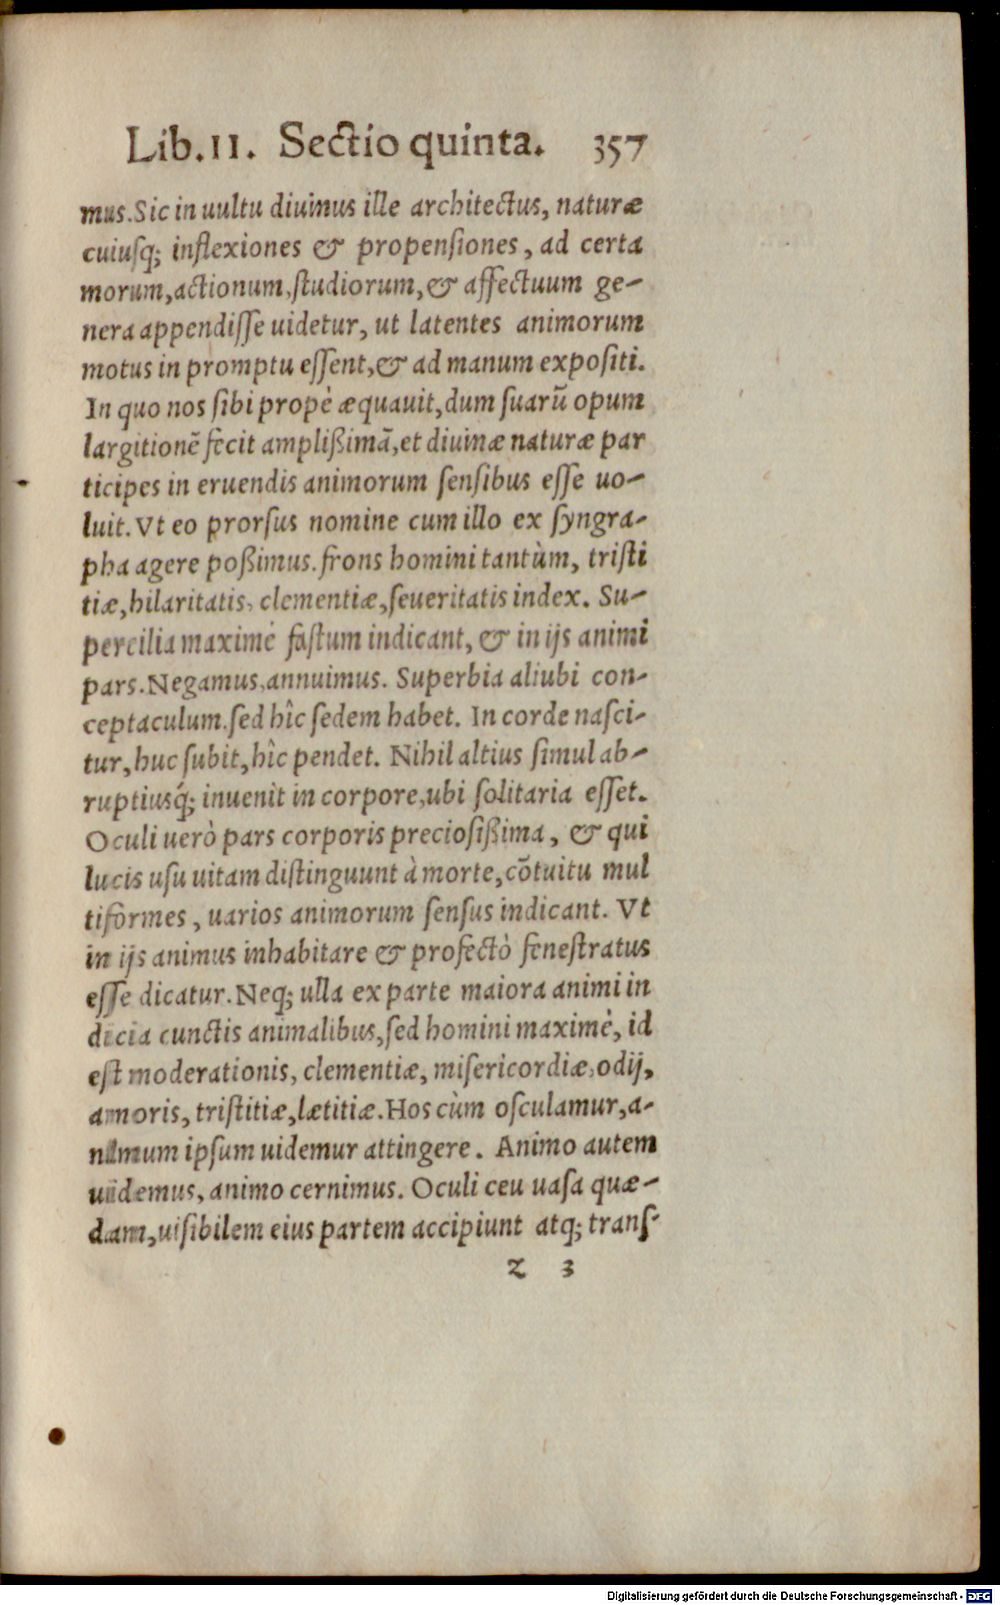 Lib.II. Sectio quinta. 357
mus. Sic in uultu diuinus ille architectus, naturæ
cuiusq; inflexiones & propensiones, ad certa
morum, actionum, studiorum, & affectuum ge-
nera appendisse uidetur, ut latentes animorum
motus in promptu essent, & ad manum expositi.
In quo nos sibi propè æquauit, dum suarū opum
largitionē fecit amplißimā, et diuinæ naturæ par
ticipes in eruendis animorum sensibus esse uo-
luit. Vt eo prorsus nomine cum illo ex syngra-
pha agere poßimus. frons homini tantùm, tristi
tiæ, hilaritatis, clementiæ, seueritatis index. Su-
percilia maximè fastum indicant, & in ijs animi
pars. Negamus, annuimus. Superbia aliubi con-
ceptaculum. sed hîc sedem habet. In corde nasci-
tur, huc subit, hîc pendet. Nihil altius simul ab-
ruptiusq́; inuenit in corpore, ubi solitaria esset.
Oculi uerò pars corporis preciosißima, & qui
lucis usu uitam distinguunt à morte, cōtuitu mul
tiformes, uarios animorum sensus indicant. Vt
in ijs animus inhabitare & profectò fenestratus
esse dicatur. Neq; ulla ex parte maiora animi in
dicia cunctis animalibus, sed homini maximè, id
est moderationis, clementiæ, misericordiæ, odij,
amoris, tristitiæ, lætitiæ. Hos cùm osculamur, a-
nimum ipsum uidemur attingere. Animo autem
uidemus, animo cernimus. Oculi ceu uasa quæ-
dam, uisibilem eius partem accipiunt atq; trans-
z 3
Digitalisierung gefördert durch die Deutsche Forschungsgemeinschaft - DFG